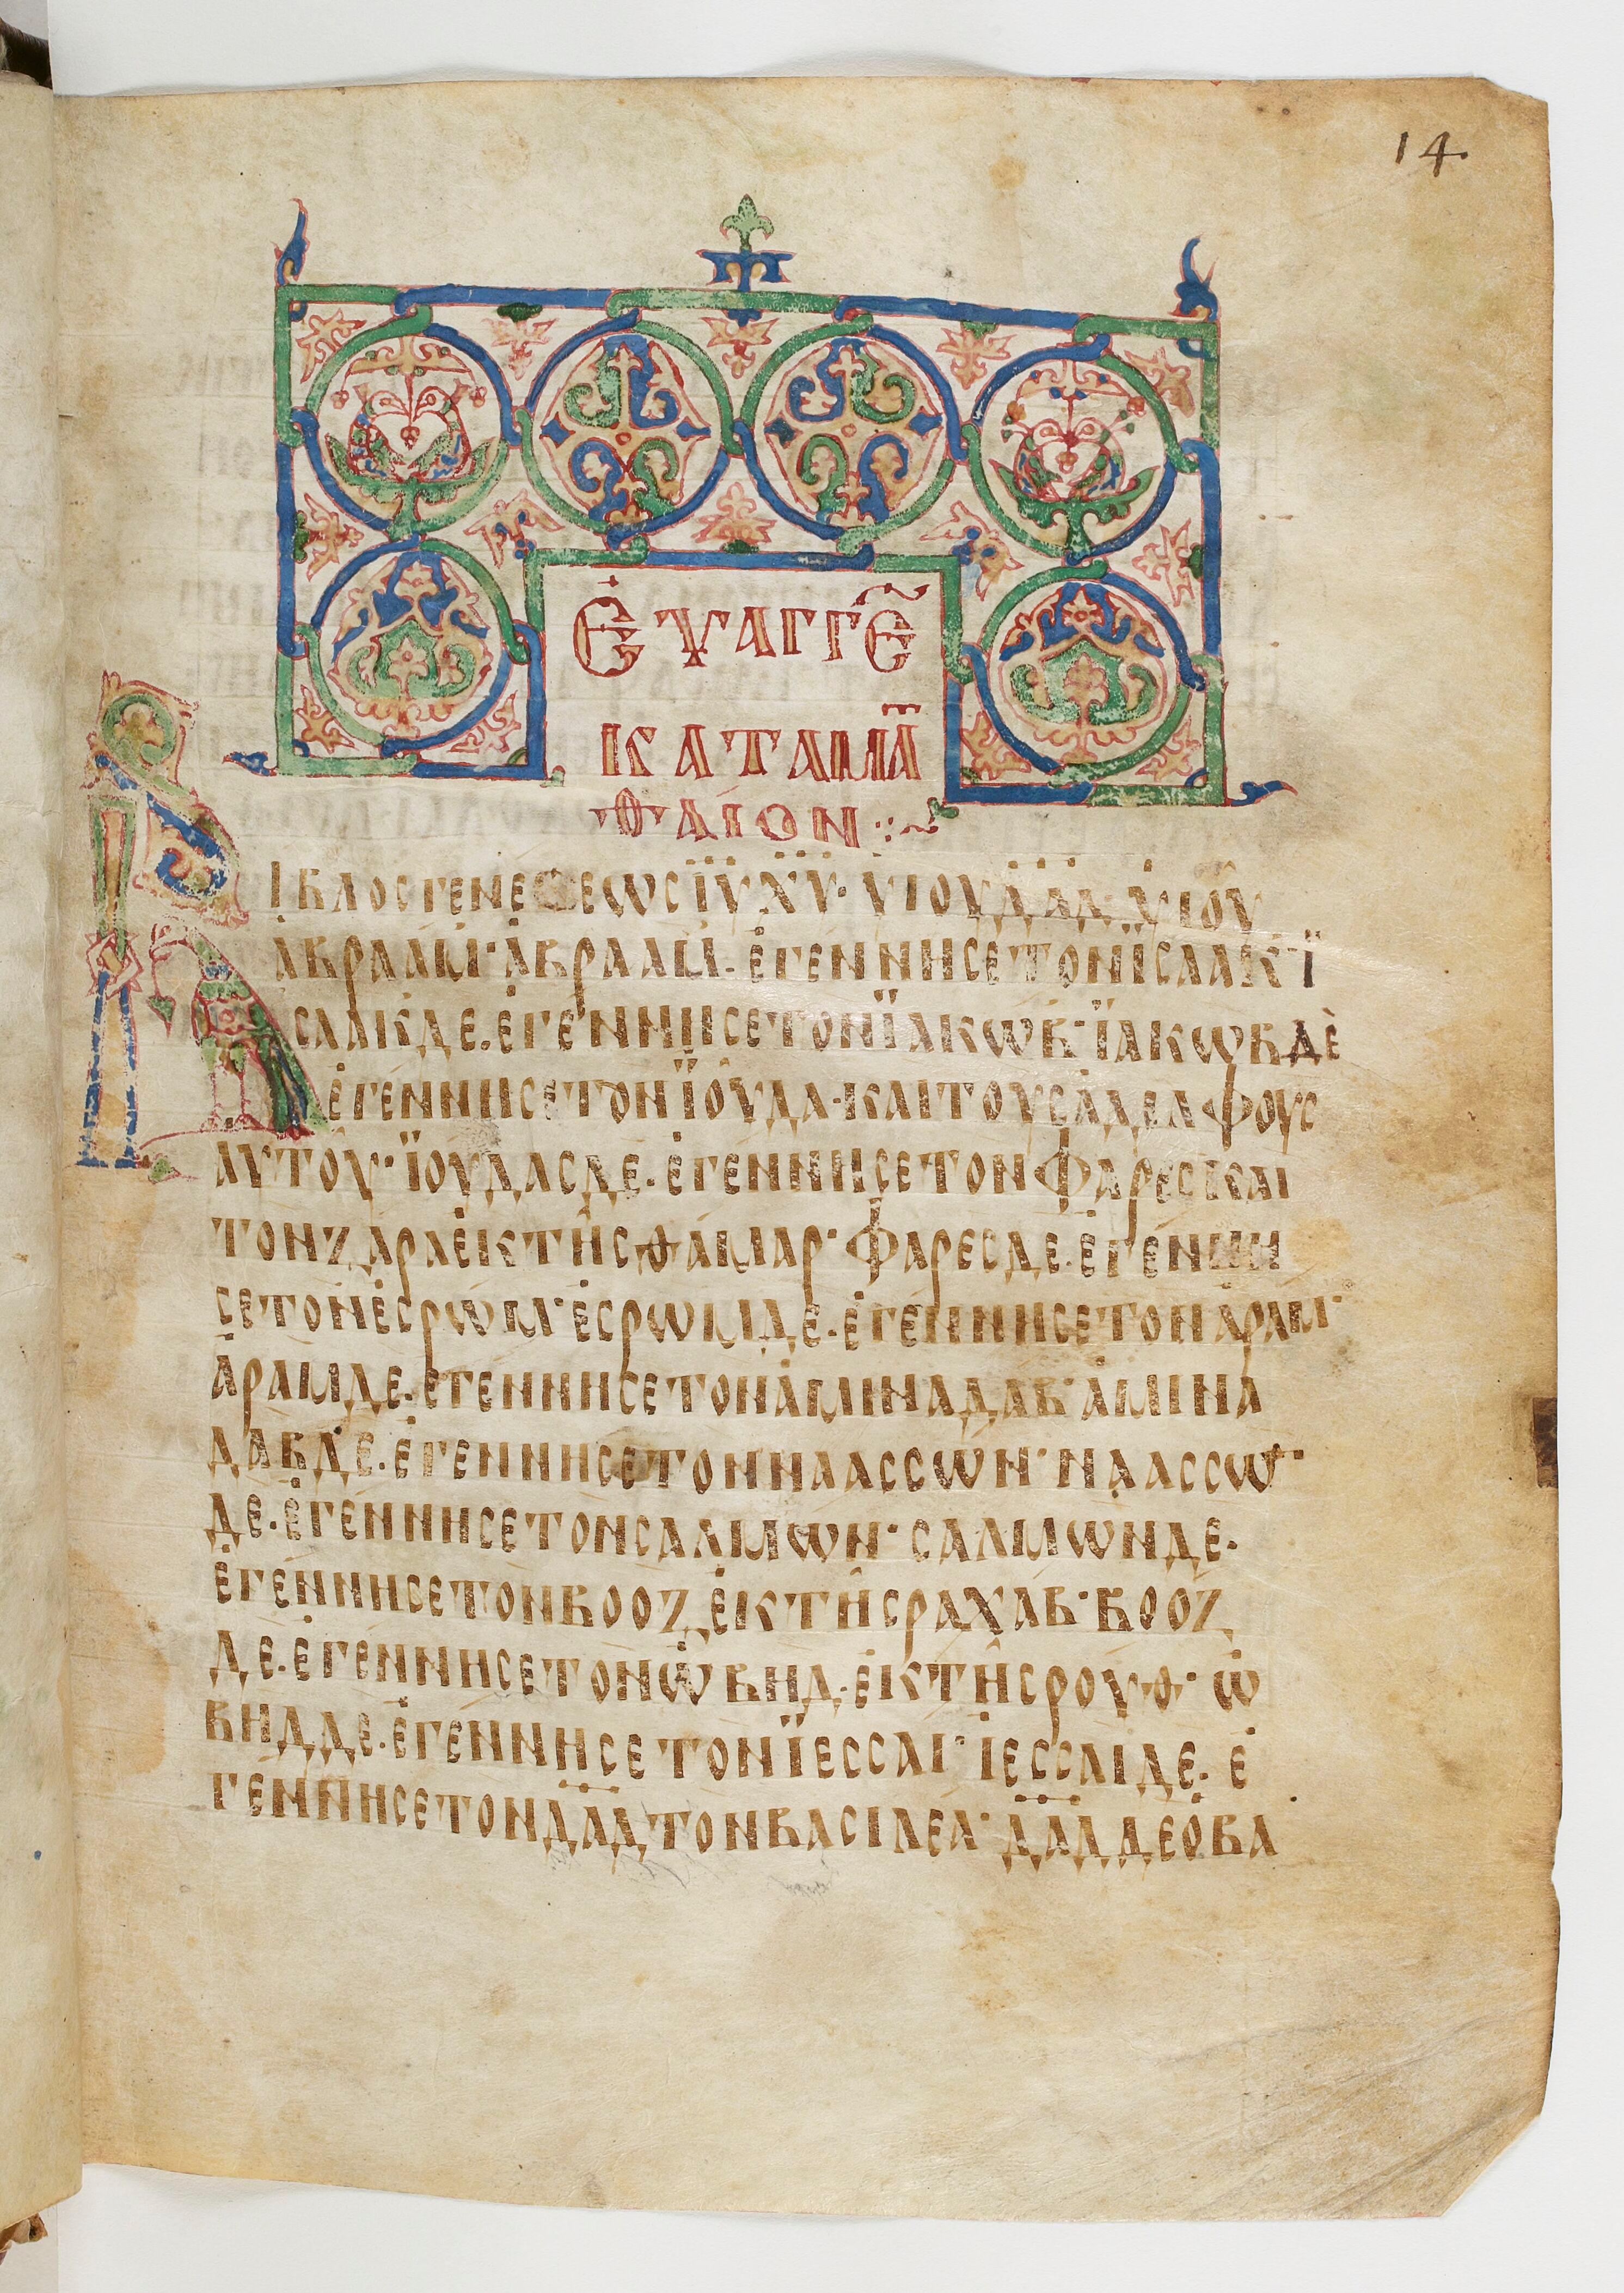 14.
ΕΥΑΓΓΕ
ΚΑΤΑΜΑ
ΘΑΙΟΝ
ΒΙΒΛΟΣ ΓΕΝΕΣΕΩΣ ΙΥ ΧΥ· ΥΙΟΥ ΔΑΔ· ΥΙΟΥ
ΑΒΡΑΑΜ· ΑΒΡΑΑΜ· ΕΓΕΝΝΗΣΕ ΤΟΝ ΙΣΑΑΚ· Ϊ
ΣΑΑΚ ΔΕ· ΕΓΕΝΝΗΣΕ ΤΟΝ ΪΑΚΩΒ· ΪΑΚΩΒ ΔΕ
ΕΓΕΝΝΗΣΕ ΤΟΝ ΪΟΥΔΑ· ΚΑΙ ΤΟΥΣ ΑΔΕΛΦΟΥΣ
ΑΥΤΟΥ· ΪΟΥΔΑΣ ΔΕ· ΕΓΕΝΝΗΣΕ ΤΟΝ ΦΑΡΕΣ ΚΑΙ
ΤΟΝ ΖΑΡΑ ΕΚ ΤΗΣ ΘΑΜΑΡ· ΦΑΡΕΣ ΔΕ· ΕΓΕΝΝΗ
ΣΕ ΤΟΝ ΕΣΡΩΜ· ΕΣΡΩΜ ΔΕ· ΕΓΕΝΝΗΣΕ ΤΟΝ ΑΡΑΜ·
ΑΡΑΜ ΔΕ· ΕΓΕΝΝΗΣΕ ΤΟΝ ΑΜΙΝΑΔΑΒ· ΑΜΙΝΑ
ΔΑΒ ΔΕ· ΕΓΕΝΝΗΣΕ ΤΟΝ ΝΑΑΣΣΩΝ· ΝΑΑΣΣΩ
ΔΕ· ΕΓΕΝΝΗΣΕ ΤΟΝ ΣΑΛΜΩΝ· ΣΑΛΜΩΝ ΔΕ·
ΕΓΕΝΝΗΣΕ ΤΟΝ ΒΟΟΖ ΕΚ ΤΗΣ ΡΑΧΑΒ· ΒΟΟΖ
ΔΕ· ΕΓΕΝΝΗΣΕ ΤΟΝ ΩΒΗΔ· ΕΚ ΤΗΣ ΡΟΥΘ· Ω
ΒΗΔ ΔΕ· ΕΓΕΝΝΗΣΕ ΤΟΝ ΪΕΣΣΑΙ· ΙΕΣΣΑΙ ΔΕ· Ε
ΓΕΝΝΗΣΕ ΤΟΝ ΔΑΔ ΤΟΝ ΒΑΣΙΛΕΑ· ΔΑΔ ΔΕ Ο ΒΑ